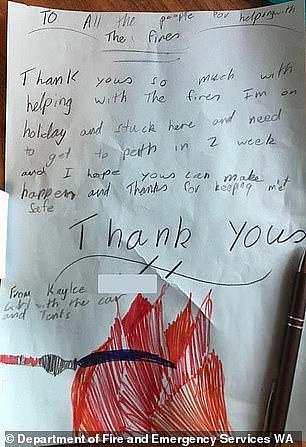 TO All the people for helping with
The fires
Thank yous so much with
helping with The fires I'm on
holday and stuck here and need
to get to perth in 2 week
and I hope yous can make it
happen and Thanks for keeping me
safe
Thank yous
From Kaylee
Girl with the car
and Tents
© Department of Fire and Emergency Services WA